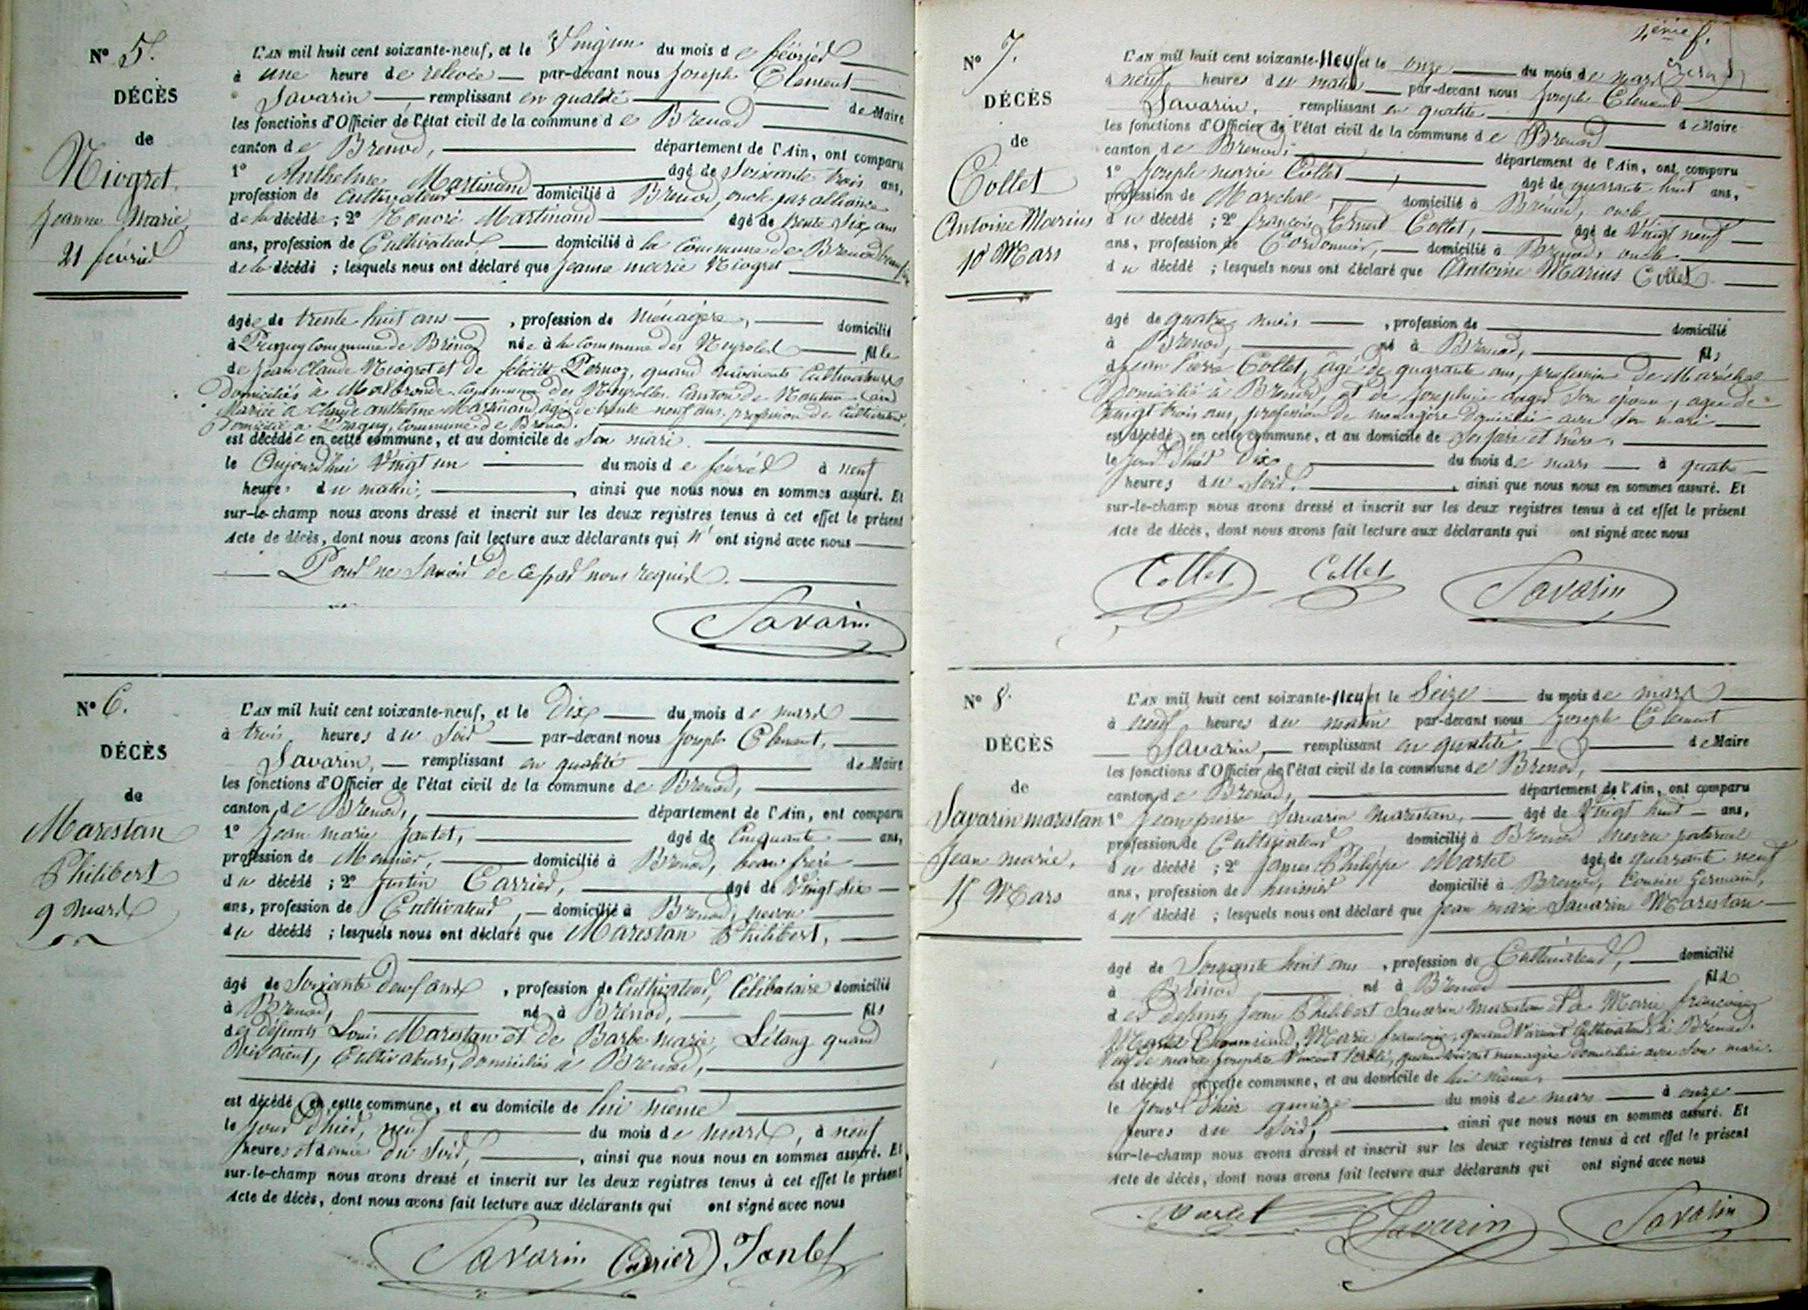 N° 5.
DÉCÈS
de
Niogret
Jeanne Marie
21 février
L'AN mil huit cent soixante-neuf, et le Vingt un du mois de février
à une heure de relevée par-devant nous Joseph Clément
Savarin remplissant en qualité de Maire
les fonctions d'Officier de l'état civil de la commune de Brenod
canton de Brenod, département de l'Ain, ont comparu
1° Anthelme Martinand âgé de Soixante trois ans,
profession de Cultivateur domicilié à Brenod, oncle par alliance
de la décédé ; 2° Honoré Martinand âgé de trente six ans
ans, profession de Cultivateur domicilié à la Commune de Brenod
de la décédé ; lesquels nous ont déclaré que Jeanne marie Niogret
âgée de trente huit ans, profession de ménagère, domicilié
à commune de Brénod née à la commune des Neyrolles fille
de Jean Claude Niogret et de félicité Pernoz, quand vivaient Cultivateurs
Domiciliés à Malbronde commune des Neyrolles Canton de Nantua
Mariée à Claude anthelme Martinand, âgé de trente neuf ans, profession de Cultivateur,
Domicilié à commune de Brenod.
est décédée en cette commune, et au domicile de son mari.
le Aujourd'hui Vingt un du mois de février à neuf
heures du matin, ainsi que nous nous en sommes assuré. Et
sur-le-champ nous avons dressé et inscrit sur les deux registres tenus à cet effet le présent
Acte de décès, dont nous avons fait lecture aux déclarants qui n'ont signé avec nous
Pour ne savoir de ce par nous requis.
Savarin
N° 6.
DÉCÈS
de
Marestan
Philibert
9 mars
L'AN mil huit cent soixante-neuf, et le Dix du mois de mars
à trois heures du Soir par-devant nous Joseph Clément,
Savarin, remplissant en qualité de Maire
les fonctions d'Officier de l'état civil de la commune de Brenod,
canton de Brenod, département de l'Ain, ont comparu
1° Jean marie Jantet, âgé de Cinquante ans,
profession de Meunier, domicilié à Brenod, beau frère
du décédé ; 2° Justin Carrier, âgé de Vingt six
ans, profession de Cultivateur, domicilié à Brenod, neveu
du décédé ; lesquels nous ont déclaré que Marestan Philibert,
âgé de Soixante deux ans, profession de Cultivateur, Célibataire domicilié
à Brenod, né à Brénod, fils
des défunts Louis Marestan et de Barbe marie Létang quand
Vivaient, Cultivateurs, domiciliés à Brenod,
est décédé en cette commune, et au domicile de lui même
le jour d'hier, neuf du mois de mars, à neuf
heures et demie du Soir, ainsi que nous nous en sommes assuré. Et
sur-le-champ nous avons dressé et inscrit sur les deux registres tenus à cet effet le présent
Acte de décès, dont nous avons fait lecture aux déclarants qui ont signé avec nous
Savarin Carrier Jantet
4ème f.
N° 7.
DÉCÈS
de
Collet
Antoine Marius
10 Mars
L'AN mil huit cent soixante-neuf et le onze du mois de mars
à neuf heures du matin par-devant nous Joseph Clément
Savarin, remplissant en qualité de Maire
les fonctions d'Officier de l'état civil de la commune de Brenod
canton de Brenod, département de l'Ain, ont comparu
1° Joseph marie Collet, âgé de quarante huit ans,
profession de Maréchal, domicilié à Brénod, oncle
du décédé ; 2° françois Ernest Collet, âgé de Vingt neuf
ans, profession de Cordonnier, domicilié à Brenod, oncle
du décédé ; lesquels nous ont déclaré que Antoine Marius Collet
âgé de quatre mois, profession de domicilié
à Brenod, né à Brenod, fils
de Jean Pierre Collet, âgé de quarante ans, profession de Maréchal
Domicilié à Brenod, et de Joséphine son épouse, âgée de
Vingt trois ans, profession de ménagère Domiciliée avec son mari
est décédé en cette commune, et au domicile de ses père et mère,
le Jour d'hier Dix du mois de mars à quatre
heures du Soir, ainsi que nous nous en sommes assuré. Et
sur-le-champ nous avons dressé et inscrit sur les deux registres tenus à cet effet le présent
Acte de décès, dont nous avons fait lecture aux déclarants qui ont signé avec nous
Collet Collet Savarin
N° 8.
DÉCÈS
de
Savarin marestan
Jean marie,
15 Mars
L'AN mil huit cent soixante-neuf et le Seize du mois de mars
à neuf heures du matin par-devant nous Joseph Clément
Savarin, remplissant en qualité de Maire
les fonctions d'Officier de l'état civil de la commune de Brenod,
canton de Brenod, département de l'Ain, ont comparu
1° Jean pierre Savarin marestan, âgé de Vingt huit ans,
profession de Cultivateur domicilié à Brenod neveu paternel
du décédé ; 2° James Philippe Martel âgé de quarante neuf
ans, profession de huissier domicilié à Brenod, Cousin Germain,
du décédé ; lesquels nous ont déclaré que Jean marie Savarin Marestan
âgé de Soixante huit ans, profession de Cultivateur, domicilié
à Brénod né à Brenod fils
des défunts Jean Philibert Savarin Marestan et de Marie françoise
Martel Marie françoise, quand Vivaient Cultivateurs à Brénod.
Veuf de marie Josephte Vincent quand vivait ménagère domiciliée avec son mari.
est décédé en cette commune, et au domicile de lui même,
le Jour d'hier quinze du mois de mars à onze
heures du Soir, ainsi que nous nous en sommes assuré. Et
sur-le-champ nous avons dressé et inscrit sur les deux registres tenus à cet effet le présent
Acte de décès, dont nous avons fait lecture aux déclarants qui ont signé avec nous
Martel Savarin Savarin